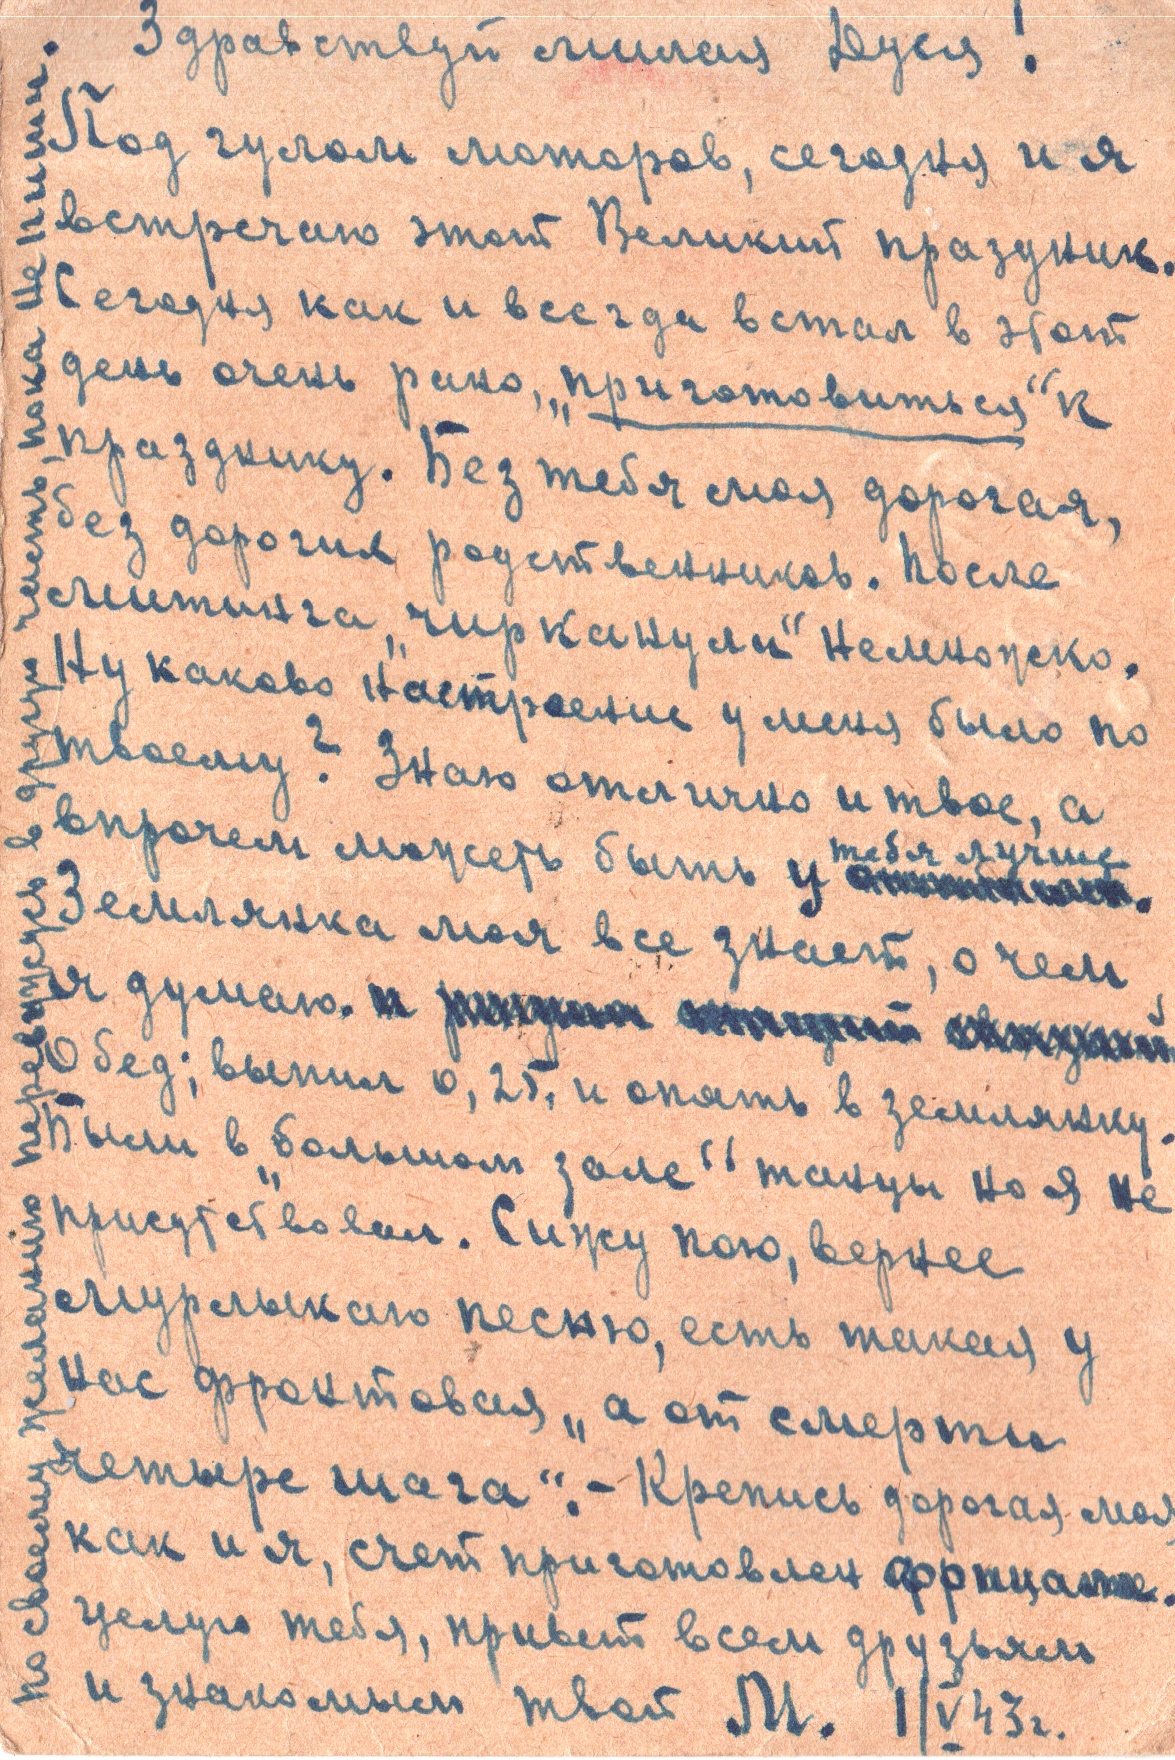 Здравствуй милая Дуся!
Под гулом моторов, сегодня и я
встречаю этот Великий праздник.
Сегодня как и всегда встал в этот
день очень рано, „приготовиться“ к
празднику. Без тебя моя дорогая,
без дорогих родственников. После
митинга „чирканули“ немножко.
Ну каково настроение у меня было по
твоему? Знаю отлично и твое, а
впрочем может быть у тебя лучше.
Землянка моя все знает, о чем
я думаю. и
Обед; выпил 0,25. и опять в землянку.
Были в „большом зале“ танцы но я не
присутствовал. Сижу пою, вернее
мурлыкаю песню, есть такая у
нас фронтовая „а от смерти
четыре шага“. - Крепись дорогая моя
как и я, счет приготовлен фрицам.
целую тебя, привет всем друзьям
и знакомым твой М. 1/V 43г.
по своему желанию перевожусь в другую часть, пока не пиши.